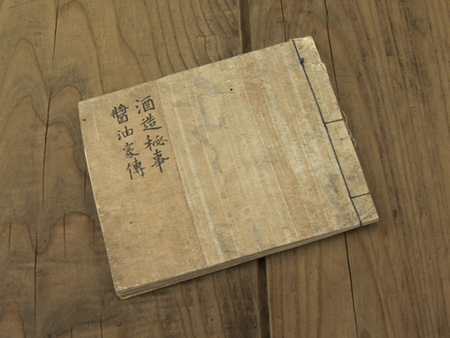 酒造秘事
醬油家傳